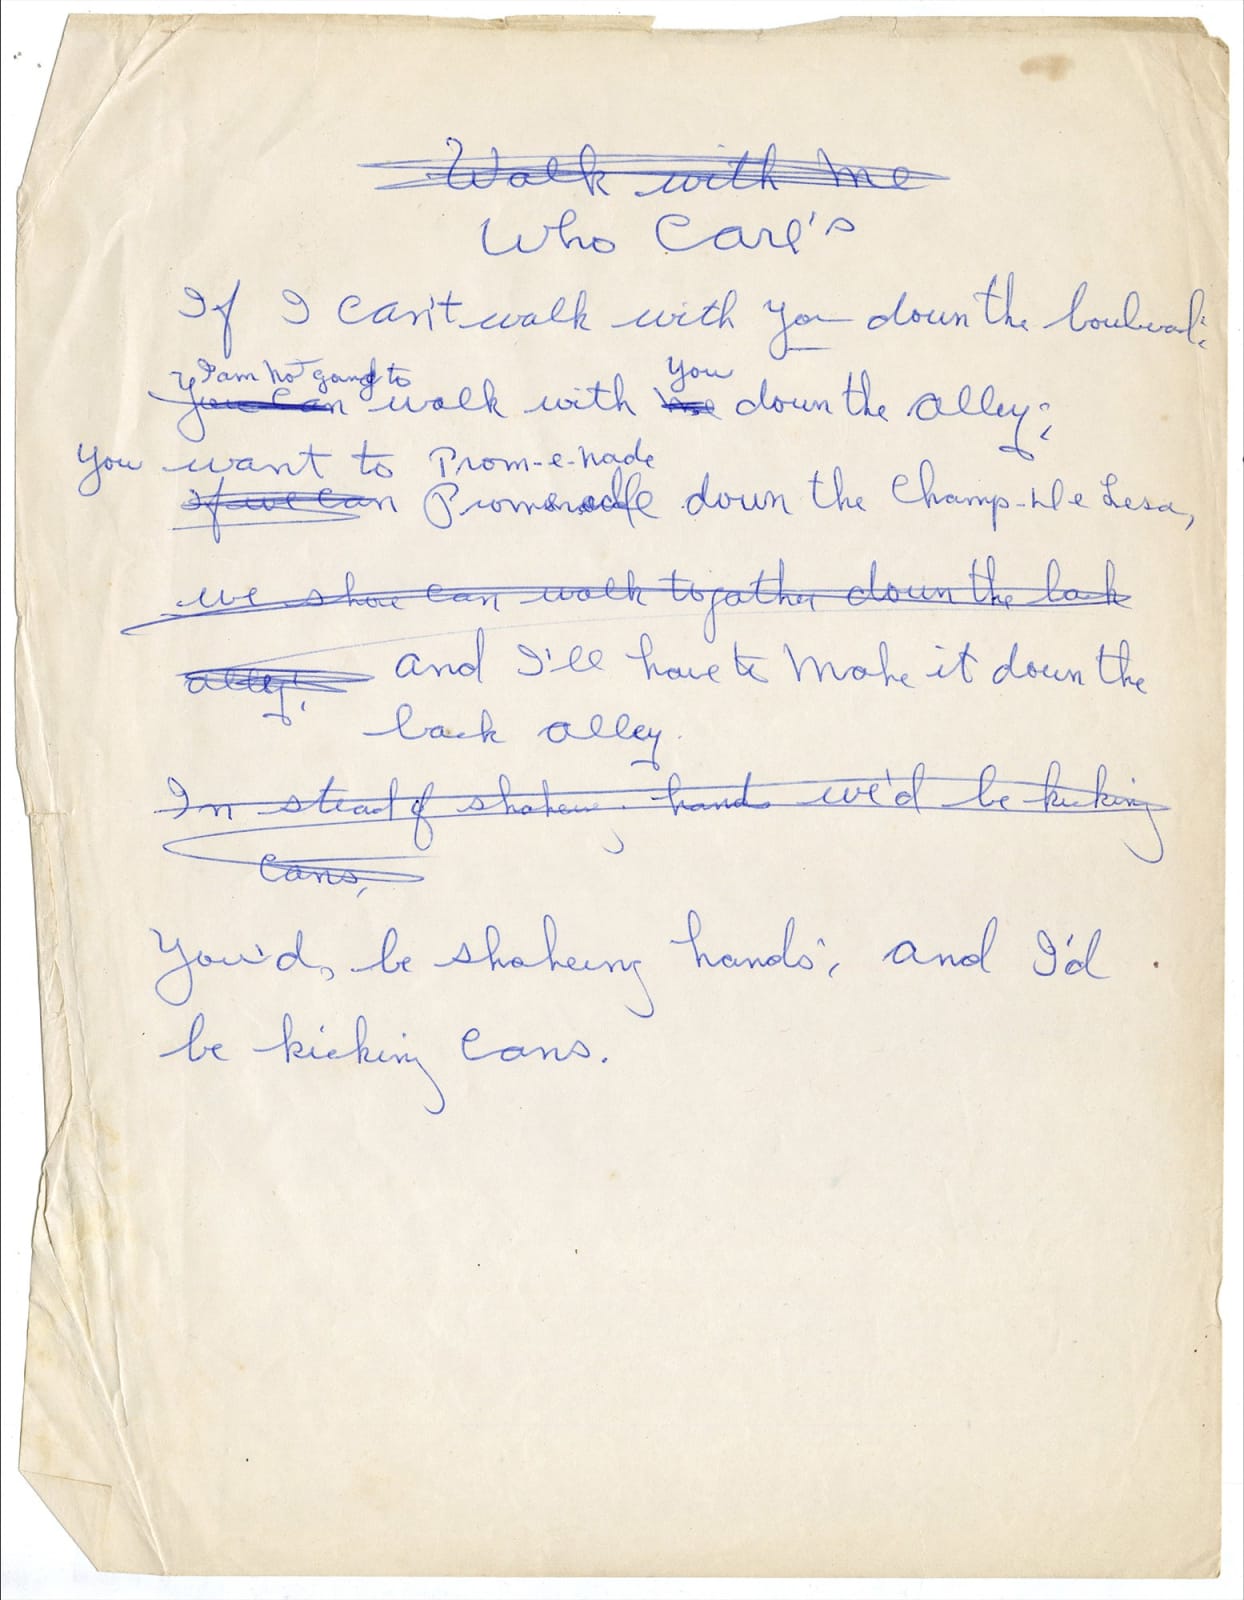 Walk with me
Who Care's
If I can't walk with you down the
I am not going to You
You can walk with me down the alley;
You want to Prom-e-nade
if we can down the Champ-De Lesa,
we can walk togather down the back
alley! and I'll have to make it down the
back alley.
In stead of hands we'd be kicking
cans,
You'd, be shakeing hands, and I'd
be kicking cans.